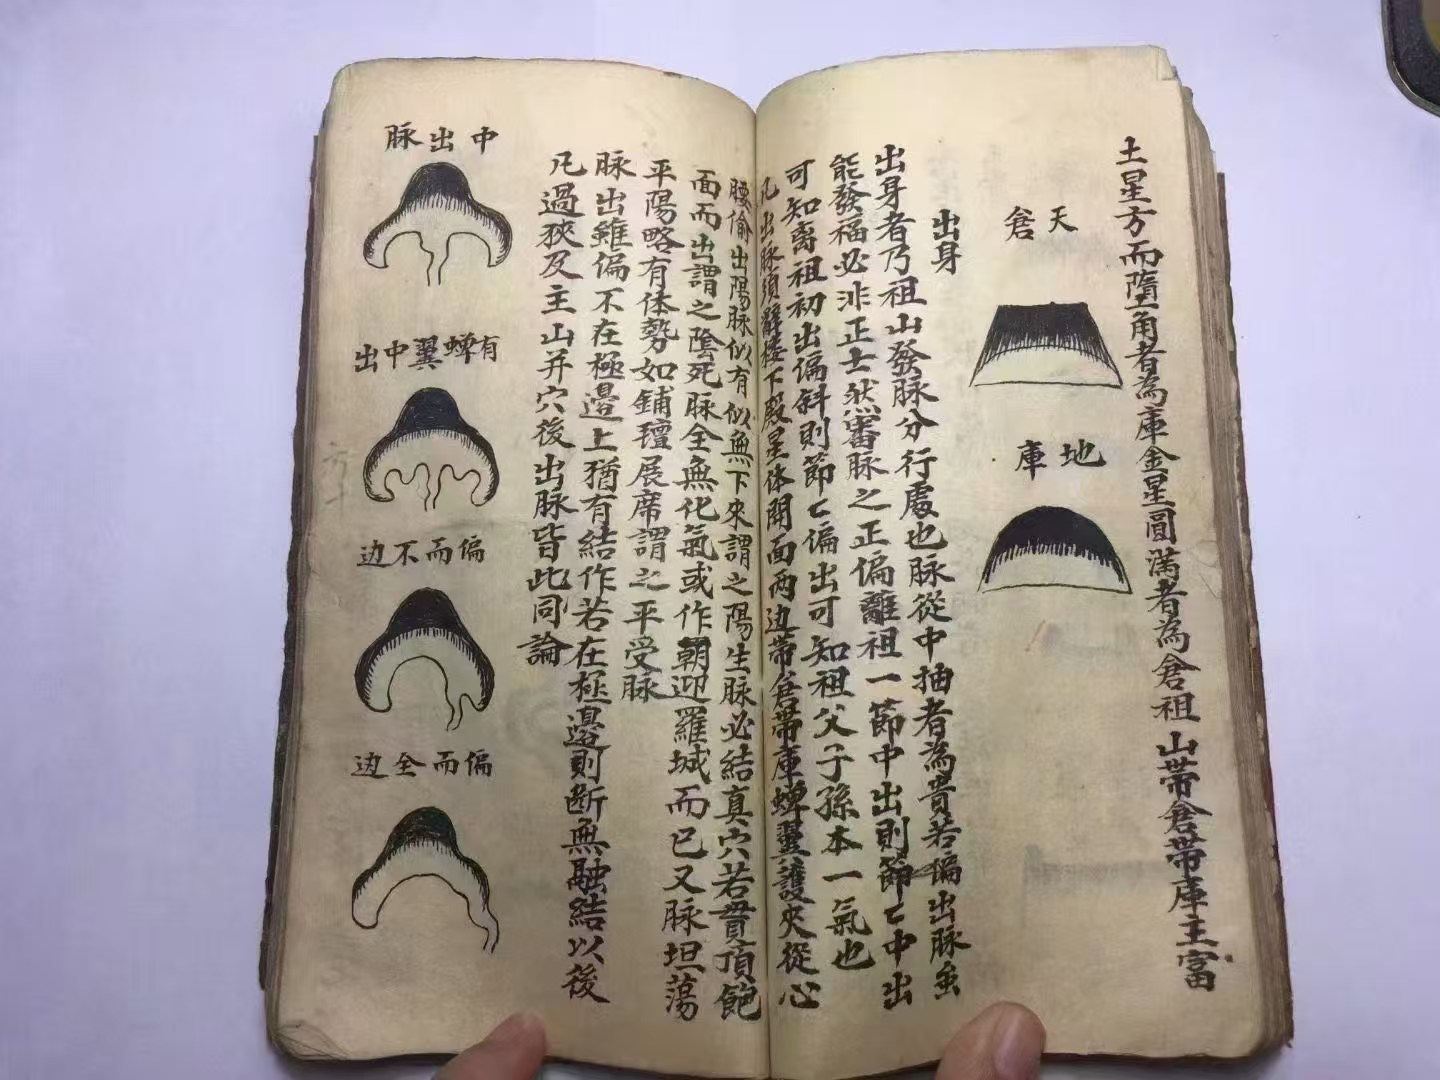 土星方而墮角者為庫金星圓滿者為倉祖山帶倉帶庫主富
天倉
地庫
出身
出身者乃祖山發脉分行處也脉從中抽者為貴若偏出脉虽
能發福必非正士然審脉之正偏離祖一節中出則節〻中出
可知离祖初出偏斜則節〻偏出可知祖父子孫本一氣也
凡出脉須辭楼下殿星体開面两边帶倉帶庫蝉翼護夾從心
腰偷出陽脉似有似無下來謂之陽生脉必結真穴若貫頂飽
面而出謂之陰死脉全無化氣或作朝迎羅城而已又脉坦蕩
平陽略有体勢如鋪氊展席謂之平受脉
脉出雖偏不在極邉上猶有結作若在極邉則断無融結以後
凡過狹及主山并穴後出脉皆此同論
中出脉
有蝉翼中出
偏而不边
偏而全边